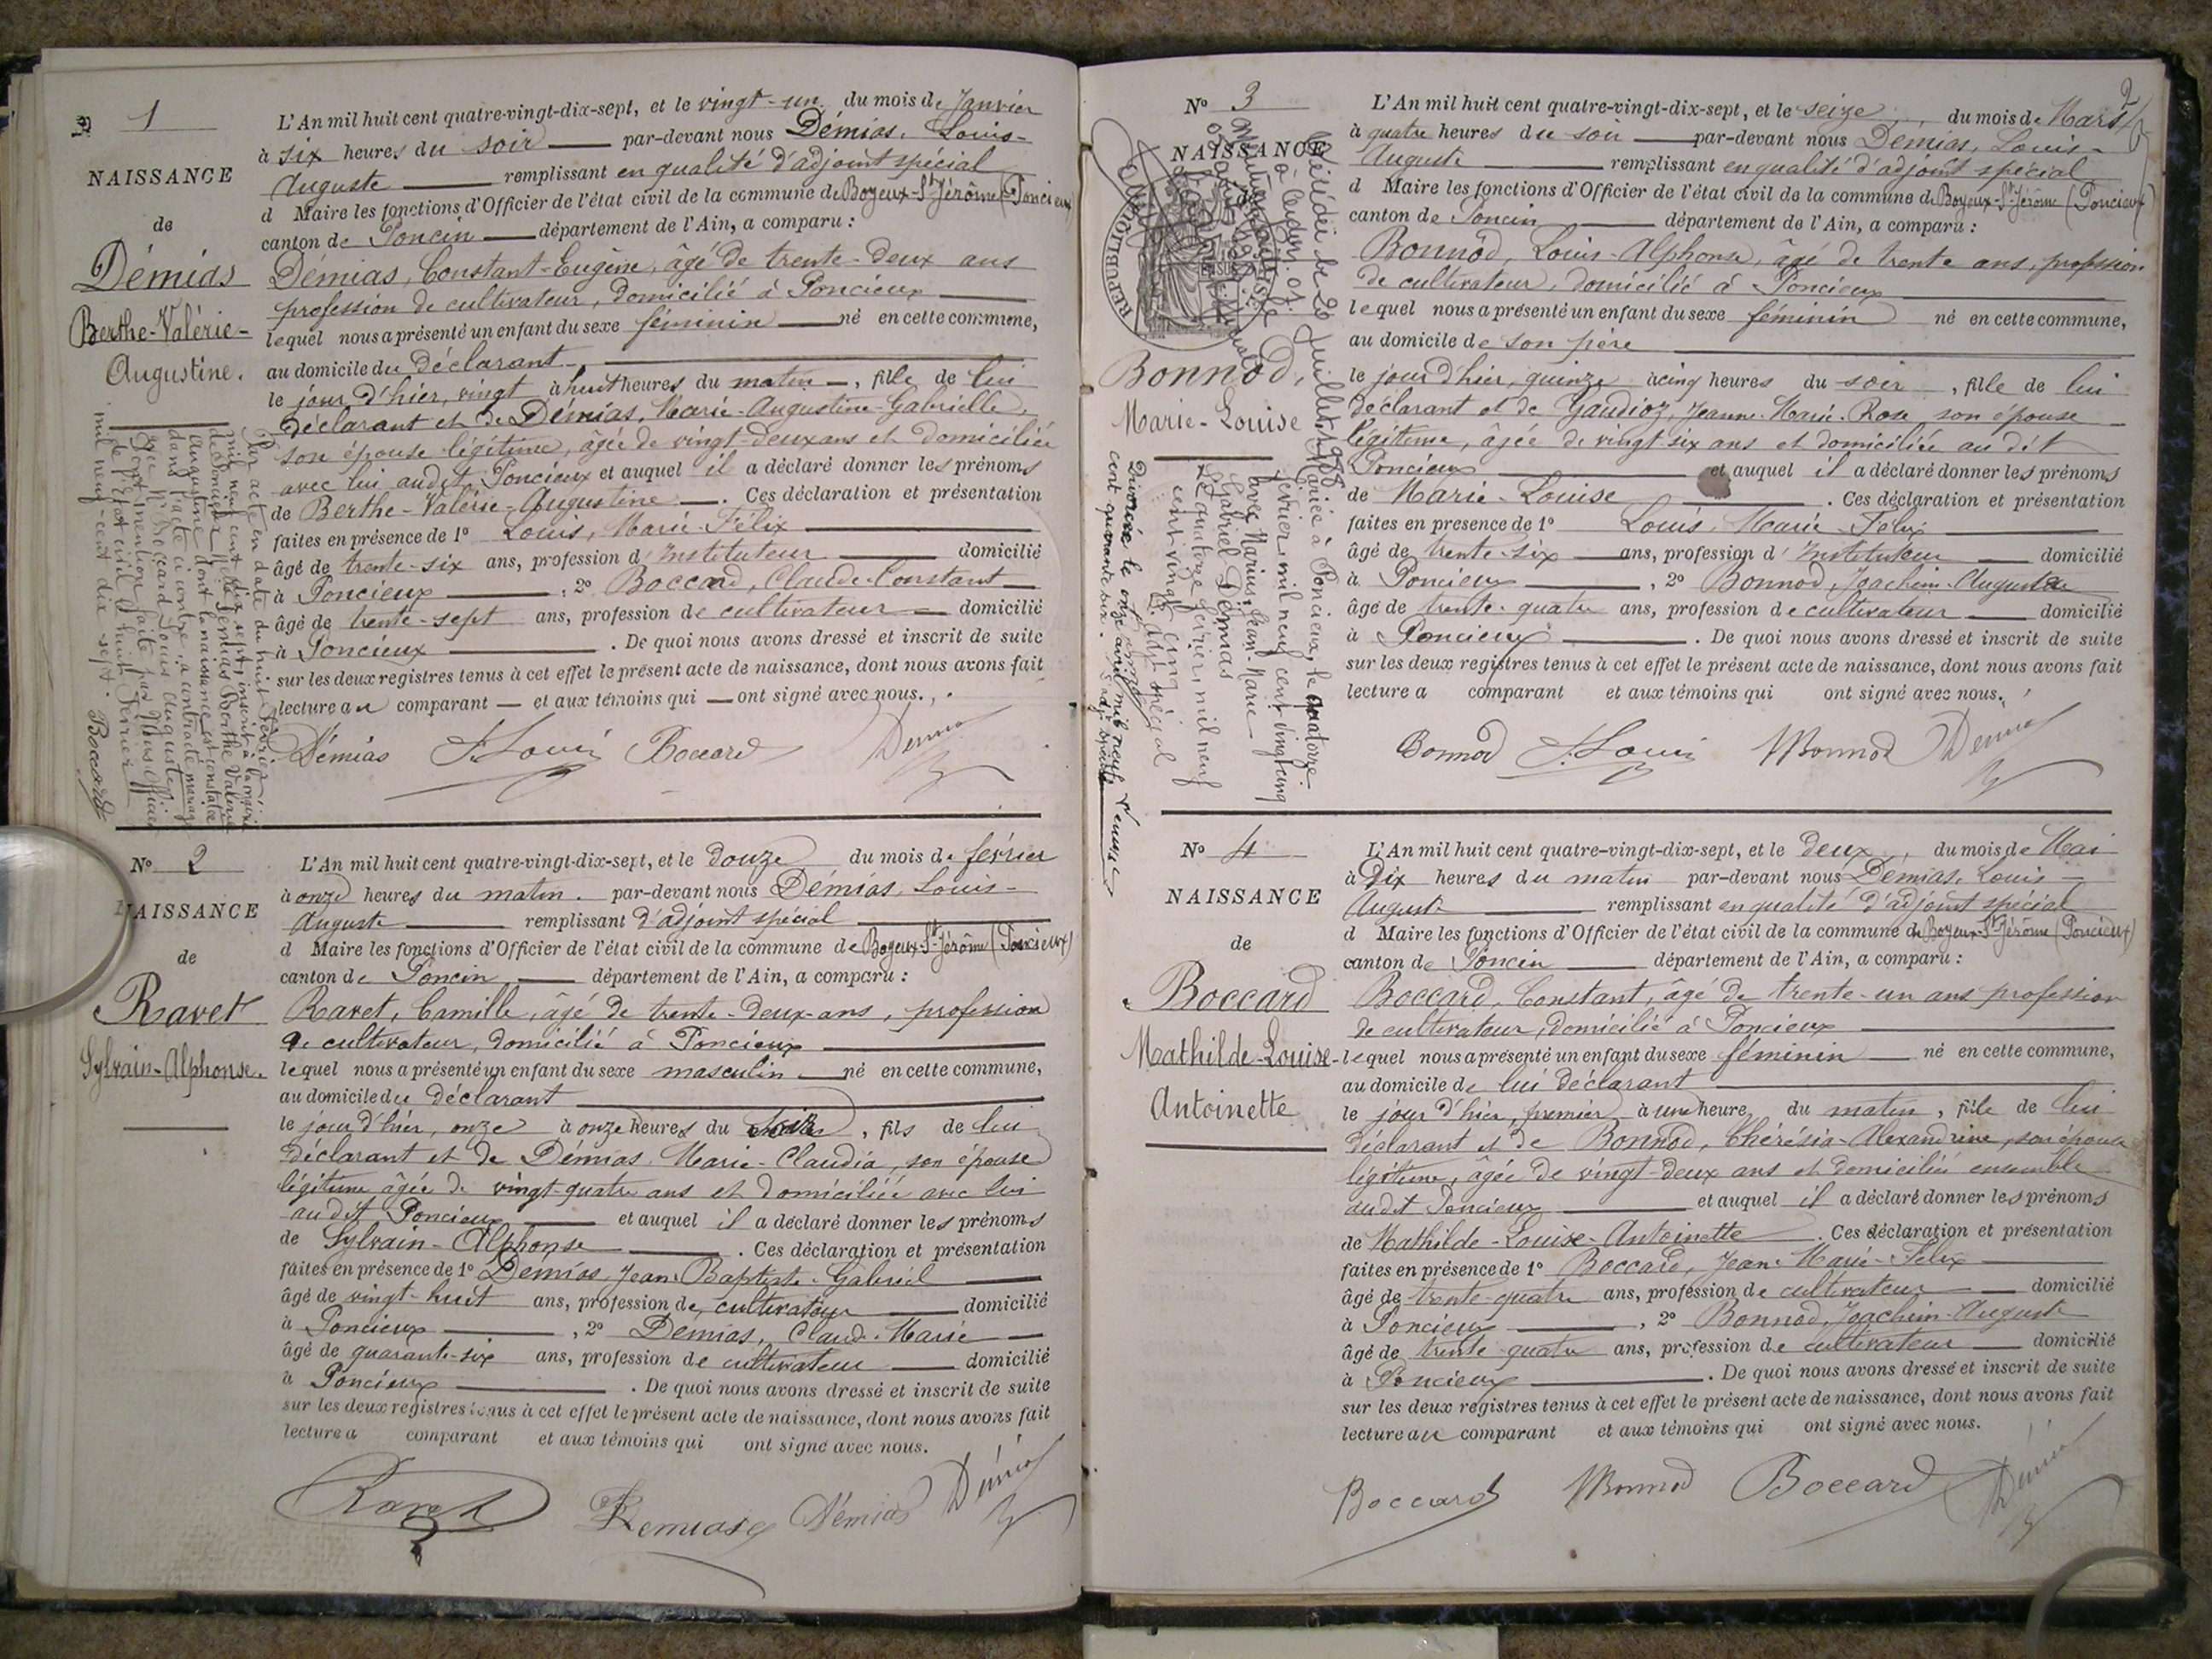 1
NAISSANCE
de
Démias
Berthe-Valérie-
Augustine.
L'An mil huit cent quatre-vingt-dix-sept, et le vingt-un du mois de Janvier
à six heures du soir par-devant nous Démias, Louis-
Auguste remplissant en qualité d'adjoint spécial
d Maire les fonctions d'Officier de l'état civil de la commune de Boyeux-St-Jérôme (Poncieux)
canton de Poncin département de l'Ain, a comparu :
Démias, Constant-Eugène, âgé de trente-deux ans
profession de cultivateur, domicilié à Poncieux
lequel nous a présenté un enfant du sexe féminin né en cette commune,
au domicile du déclarant
le jour d'hier, vingt à huit heures du matin, fille de lui
déclarant et de Démias, Marie-Augustine-Gabrielle,
son épouse légitime, âgée de vingt-deux ans et domiciliée
avec lui audit Poncieux et auquel il a déclaré donner les prénoms
de Berthe-Valérie-Augustine. Ces déclaration et présentation
faites en présence de 1° Louis, Marie-Félix
âgé de trente-six ans, profession d'Instituteur domicilié
à Poncieux, 2° Boccard, Claude-Constant
âgé de trente-sept ans, profession de cultivateur domicilié
à Poncieux. De quoi nous avons dressé et inscrit de suite
sur les deux registres tenus à cet effet le présent acte de naissance, dont nous avons fait
lecture au comparant et aux témoins qui ont signé avec nous.
Démias F. Louis Boccard Démias
Par acte en date du huit février
mil neuf cent dix sept, inscrit à la mairie
de Poncieux Melle Démias Berthe Valérie
Augustine dont la naissance est constatée
dans l'acte ci contre, a contracté mariage
avec Mr Boccard Louis Auguste.
Dont mention faite par Nous officier
de l'Etat civil le huit février
mil neuf-cent dix sept. Boccard
N° 2
NAISSANCE
de
Ravet
Sylvain-Alphonse.
L'An mil huit cent quatre-vingt-dix-sept, et le douze du mois de février
à onze heures du matin. par-devant nous Démias, Louis-
Auguste remplissant d'adjoint spécial
d Maire les fonctions d'Officier de l'état civil de la commune de Boyeux-St-Jérôme (Poncieux)
canton de Poncin département de l'Ain, a comparu :
Ravet, Camille, âgé de trente-deux-ans, profession
de cultivateur, domicilié à Poncieux
lequel nous a présenté un enfant du sexe masculin né en cette commune,
au domicile du déclarant
le jour d'hier, onze à onze heures du soir, fils de lui
déclarant et de Démias Marie-Claudia, son épouse
légitime âgée de vingt-quatre ans et domiciliée avec lui
audit Poncieux et auquel il a déclaré donner les prénoms
de Sylvain-Alphonse. Ces déclaration et présentation
faites en présence de 1° Démias Jean-Baptiste-Gabriel
âgé de vingt-huit ans, profession de cultivateur domicilié
à Poncieux, 2° Démias, Claude-Marie
âgé de quarante-six ans, profession de cultivateur domicilié
à Poncieux. De quoi nous avons dressé et inscrit de suite
sur les deux registres tenus à cet effet le présent acte de naissance, dont nous avons fait
lecture a comparant et aux témoins qui ont signé avec nous.
Ravet Demias Démias Démias
2
N° 3
NAISSANCE
Bonnod,
Marie-Louise
L'An mil huit cent quatre-vingt-dix-sept, et le seize du mois de Mars
à quatre heures du soir par-devant nous Démias, Louis-
Auguste remplissant en qualité d'adjoint spécial
d Maire les fonctions d'Officier de l'état civil de la commune de Boyeux-St-Jérôme (Poncieux)
canton de Poncin département de l'Ain, a comparu :
Bonnod, Louis-Alphonse, âgé de trente ans, profession
de cultivateur, domicilié à Poncieux
lequel nous a présenté un enfant du sexe féminin né en cette commune,
au domicile de son père
le jour d'hier, quinze à cinq heures du soir, fille de lui
déclarant et de Gaudioz, Jeanne-Marie-Rose son épouse
légitime, âgée de vingt-six ans et domiciliée au dit
Poncieux et auquel il a déclaré donner les prénoms
de Marie-Louise. Ces déclaration et présentation
faites en presence de 1° Louis, Marie-Félix
âgé de trente-six ans, profession d'Instituteur domicilié
à Poncieux, 2° Bonnod, Joachim-Auguste
âgé de trente-quatre ans, profession de cultivateur domicilié
à Poncieux. De quoi nous avons dressé et inscrit de suite
sur les deux registres tenus à cet effet le présent acte de naissance, dont nous avons fait
lecture a comparant et aux témoins qui ont signé avec nous.
Bonnod F. Louis Bonnod Démias
Décédée le 20 Juillet 1988
Mariée à Poncieux, le quatorze
février mil neuf cent vingt cinq
avec Marius, Jean-Marie
Gabriel Démias
Le quatorze février mil neuf
cent vingt cinq
Divorcée le onze avril mil neuf
cent quarante six.
REPUBLIQUE
N° 4
NAISSANCE
de
Boccard
Mathilde-Louise-
Antoinette
L'An mil huit cent quatre-vingt-dix-sept, et le deux du mois de Mai
à dix heures du matin par-devant nous Démias, Louis-
Auguste remplissant en qualité d'adjoint spécial
d Maire les fonctions d'Officier de l'état civil de la commune de Boyeux-St-Jérôme (Poncieux)
canton de Poncin département de l'Ain, a comparu :
Boccard, Constant, âgé de trente-un ans profession
de cultivateur, domicilié à Poncieux
lequel nous a présenté un enfant du sexe féminin né en cette commune,
au domicile de lui déclarant
le jour d'hier, premier à une heure du matin, fille de lui
déclarant et de Bonnod, Thérésia-Alexandrine, son épouse
légitime, âgée de vingt-deux ans et domiciliés ensemble
audit Poncieux et auquel il a déclaré donner les prénoms
de Mathilde-Louise-Antoinette. Ces déclaration et présentation
faites en présence de 1° Boccard, Jean-Marie-Félix
âgé de trente-quatre ans, profession de cultivateur domicilié
à Poncieux, 2° Bonnod, Joachim-Auguste
âgé de trente-quatre ans, profession de cultivateur domicilié
à Poncieux. De quoi nous avons dressé et inscrit de suite
sur les deux registres tenus à cet effet le présent acte de naissance, dont nous avons fait
lecture au comparant et aux témoins qui ont signé avec nous.
Boccard Bonnod Boccard Démias